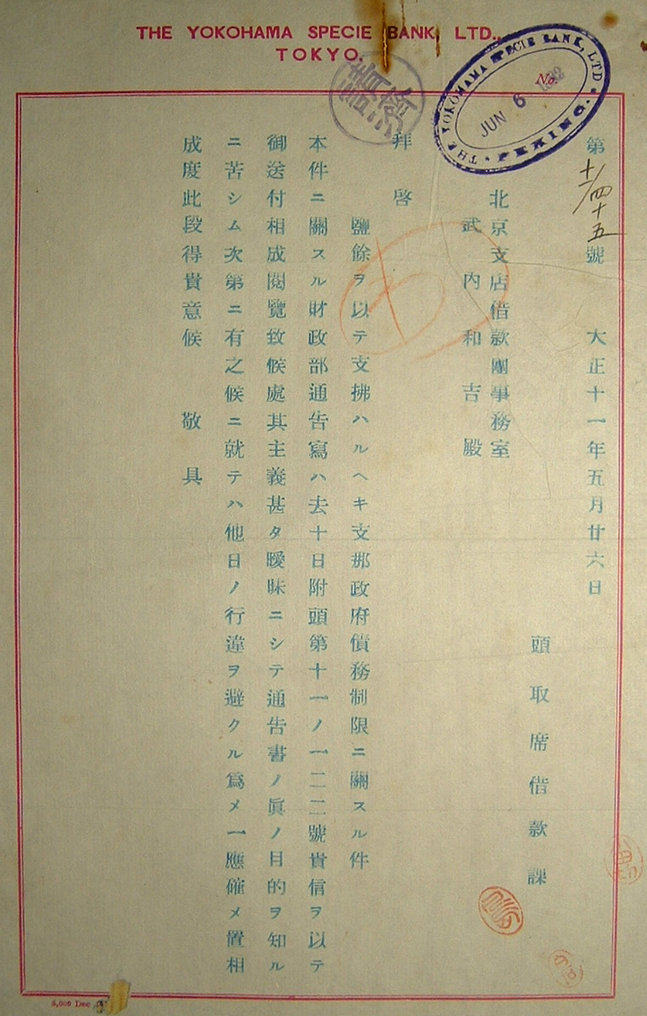 THE YOKOHAMA SPECIE BANK, LTD.,
TOKYO.
THE YOKOHAMA SPECIE BANK, LTD.
No.
JUN 6 1922
PEKING.
第十一/四十五號 大正十一年五月廿六日
頭取席借款課
北京支店借款團事務室
武内和吉殿
拜啓
鹽餘ヲ以テ支拂ハルヘキ支那政府債務制限ニ關スル件
本件ニ關スル財政部通告寫ハ去十日附頭第十一ノ一二二號貴信ヲ以テ
御送付相成閲覽致候處其主義甚タ曖昧ニシテ通告書ノ眞ノ目的ヲ知ル
ニ苦シム次第ニ有之候ニ就テハ他日ノ行違ヲ避クル爲メ一應確メ置相
成度此段得貴意候 敬具
5,000 Dec